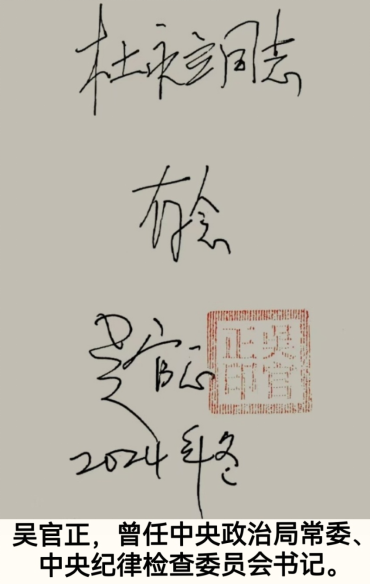 杜永立同志
存念
吴官正
吴官正印
2024年冬
吴官正，曾任中央政治局常委、
中央纪律检查委员会书记。